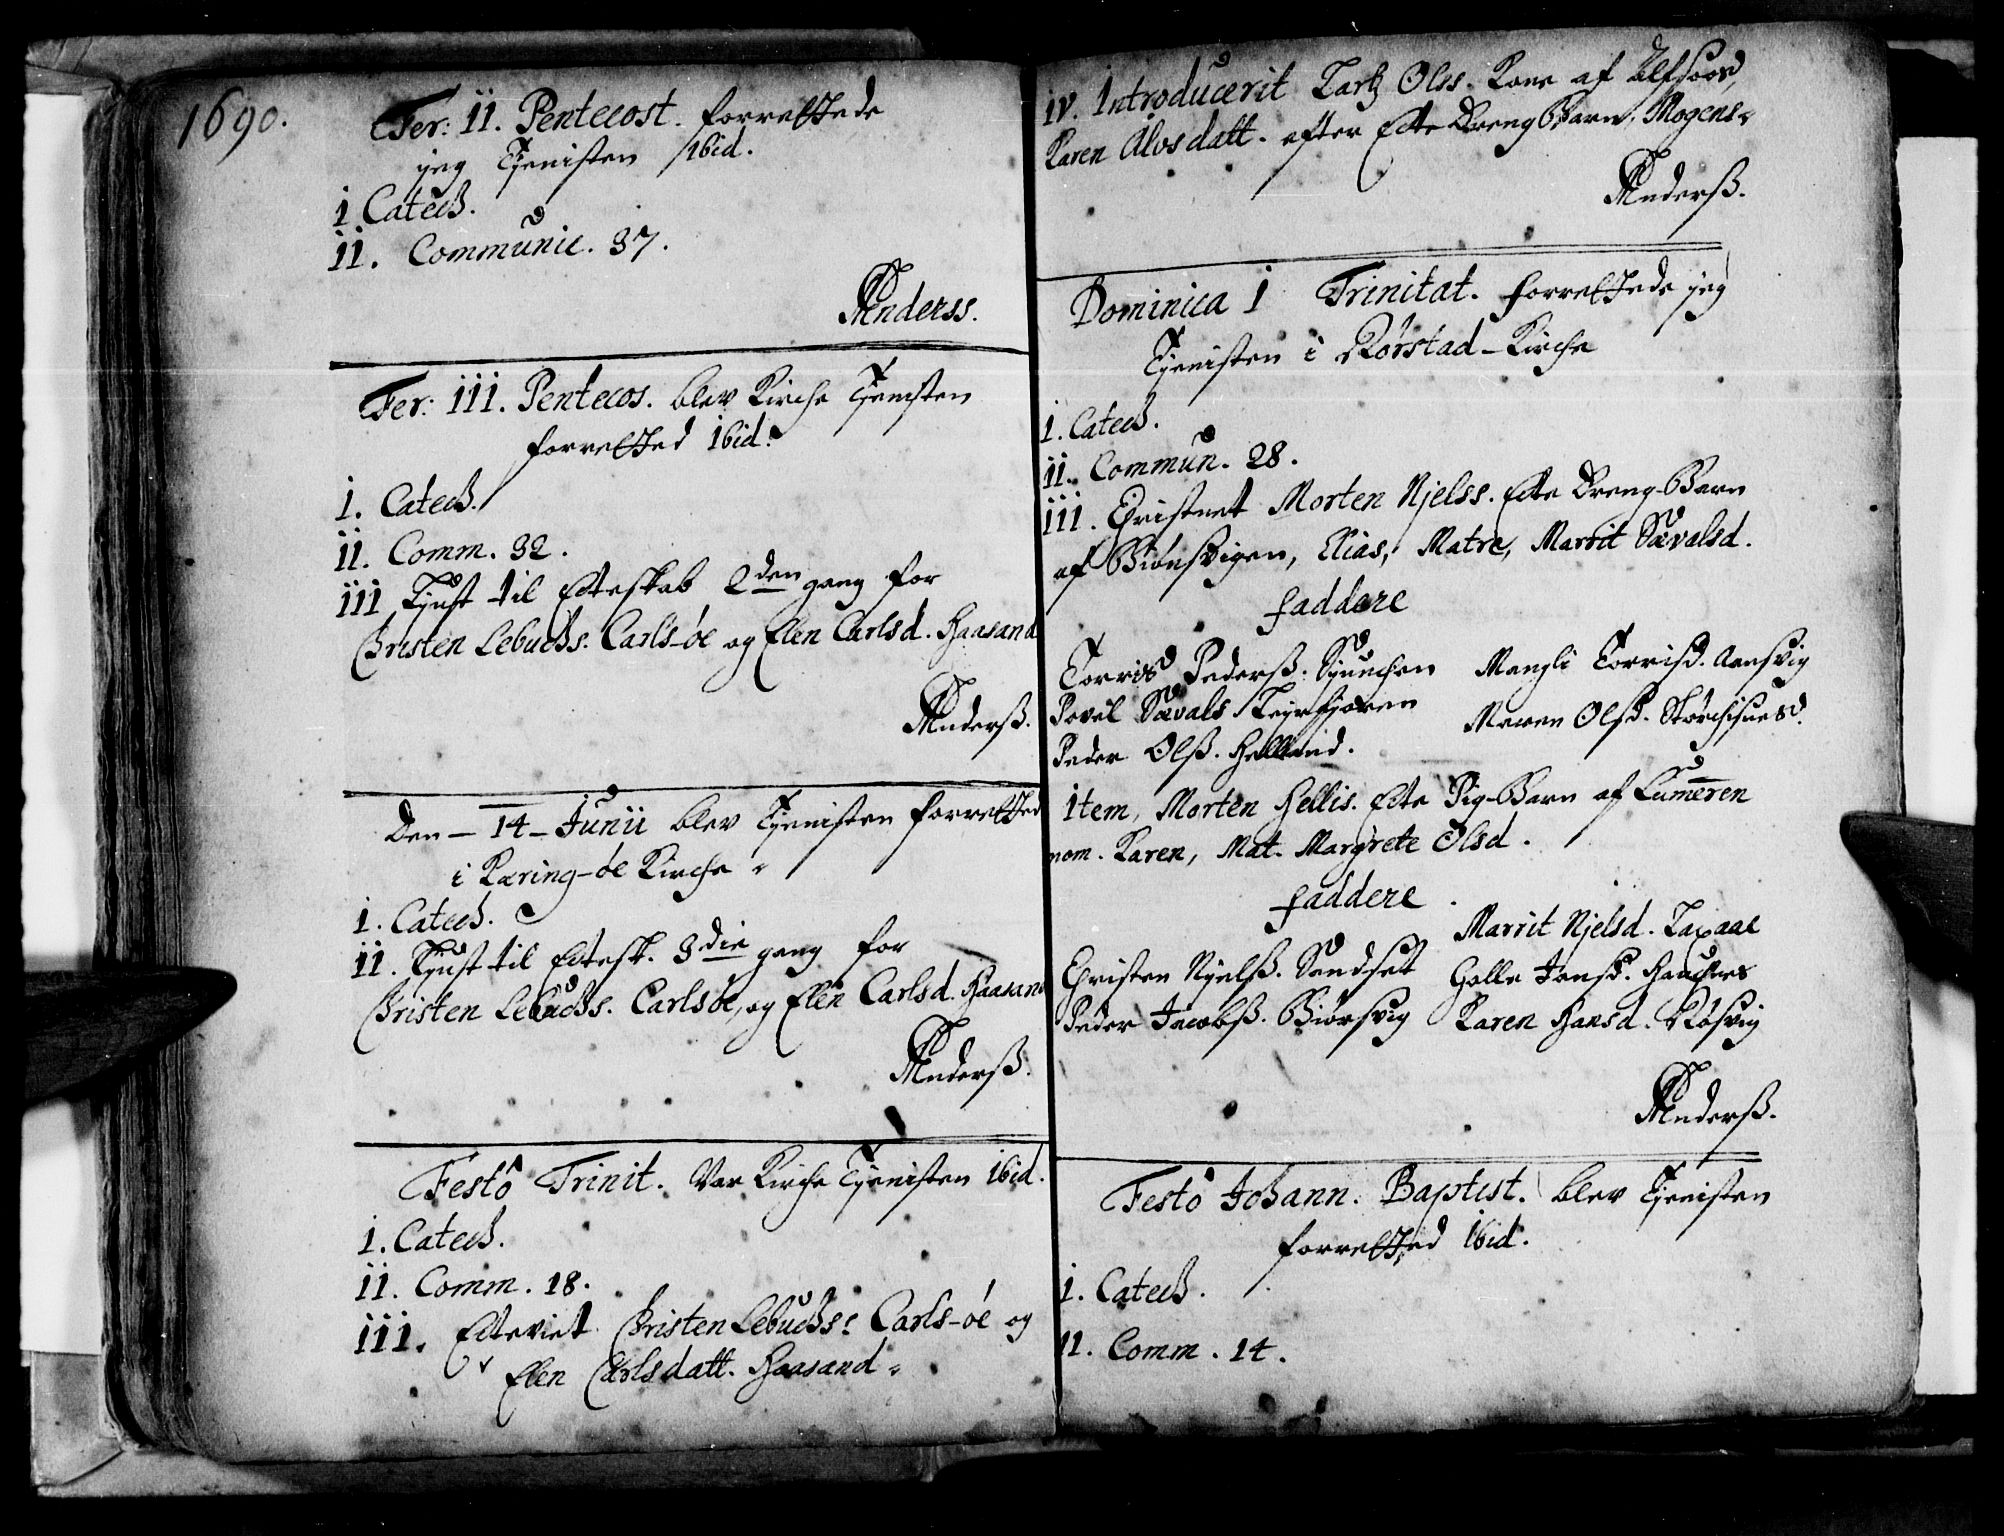 1690.
Fer: ii. Pentecost. forrettede
jeg Tjenisten ibid.
i Catech.
ii. Communic. 37.
Anderss.
Fer: iii. Pentecos. blev Kirche Tjenisten
forretted ibid.
i. Catech.
ii. Comm. 32.
iii Liust til Ecteskab 2den gang for
Christen Lebuchs. Carls-óe og Elen Carlsd. Haasand
Anderss.
Den - 14 - Junii blev Tjenisten forretted
i Kæring-óe Kirche
i. Catech.
ii. Liust til Ectesk. 3die gang for
Christen Lebuchs. Carlsóe, og Elen Carlsd. Haasand
Anderss.
Festô Trinit. Var Kirche Tjenisten ibid.
i. Catech.
ii. Comm. 18.
iii. Ecteviet Christen Lebuchs: Carls-óe og
Elen Carlsdatt. Haasand
iv. Introducerit Olss. Kone af
Karen Alvsdatt. efter Ecte DrengBarn, Mogens
Anderss.
Dominica 1 Trinitat. forrettede jeg
Tjenisten i Rórstad-Kirche
i. Catech.
ii. Commun. 28.
iii. Christnet Morten Njelss. Ecte Dreng-Barn
af Elias, Matre, Marrit Sævalsd.
faddere
Torris Pederss.
Povel Sævals
Peder Olss. Helland.
Torrisd. Aansvig
Maren Olsd.
Item, Morten Hellis. Ecte Pig-Barn af
nom. Karen, Mat. Margrete Olsd.
faddere
Christen Njelss. Sandset
Peder Jacobss. Biórsvig
Marrit Njelsd. Laxaae
Golla Jonsd.
Karen Hansd. Rósvig
Anderss.
Festô Johann. Baptist. blev Tjenisten
forretted ibid.
i. Catech.
ii. Comm. 14.